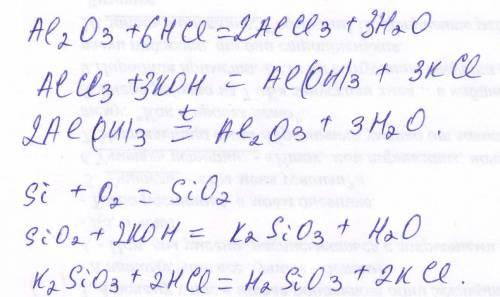 Al2O3 +6HCl =2AlCl3 +3H2O
AlCl3 +3KOH = Al(OH)3 + 3KCl
2Al(OH)3 t= Al2O3 + 3H2O.
Si + O2 = SiO2
SiO2 +2KOH = K2SiO3 + H2O
K2SiO3 +2HCl = H2SiO3 +2KCl.